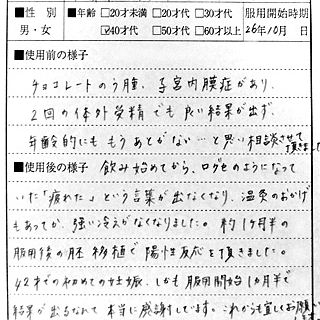 ■性 別 ■年齢 □20才未満 □20才代 □30才代 服用開始時期
男・女 ☑40才代 □50才代 □60才以上 26年10月 日
■使用前の様子
チョコレートのう腫、子宮内膜症があり、
2回の体外受精でも良い結果が出ず、
年齢的にももうあとがない…と思い相談させて頂きました
■使用後の様子 飲み始めてから、口グセのようになって
いた「疲れた」という言葉が出なくなり、温灸のおかげ
もあってか、強い冷えがなくなりました。約1ヶ月半の
服用後の胚移植で陽性反応を頂きました。
42才での初めての妊娠、しかも服用開始1ヵ月半で
結果が出るなんて本当に感謝しています。これからも宜しくお願い